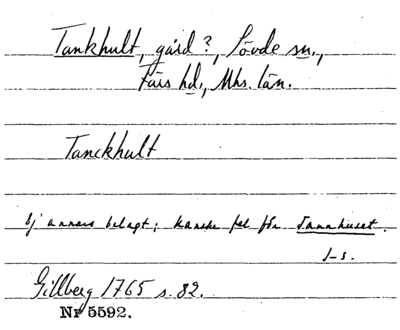 Tankhult, gård?, Sövde sn.,
Färs hd., Mhs. län.
Tanckhult
Ej annars belagt; kanske fel för Tannhuset.
J-s.
Gillberg 1765 s. 82.
Nr 5592.